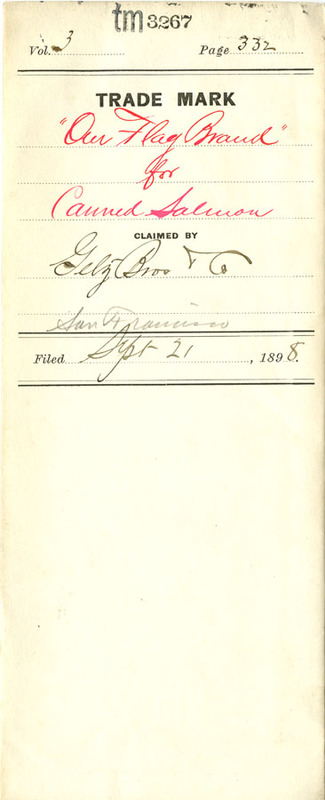 tm 3267
Vol. 3 Page 332
TRADE MARK
"Our Flag Brand"
for
Canned Salmon
CLAIMED BY
Getz Bros & Co
San Francisco
Filed Sept 21, 1898.